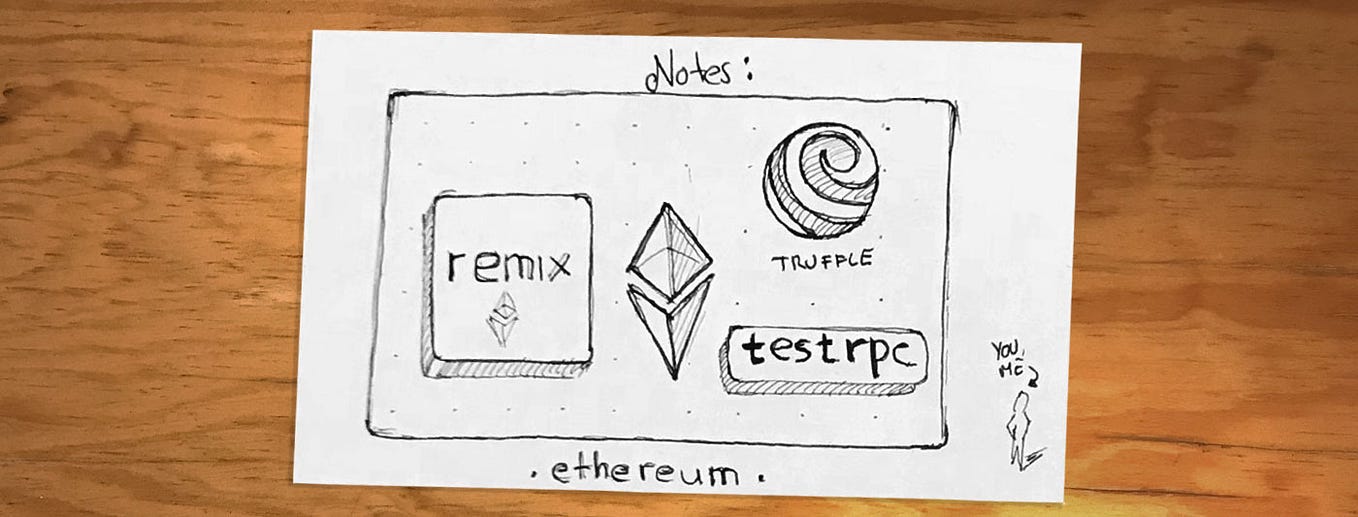 Notes:
remix
TRUFFLE
testrpc
YOU,
ME
. ethereum .